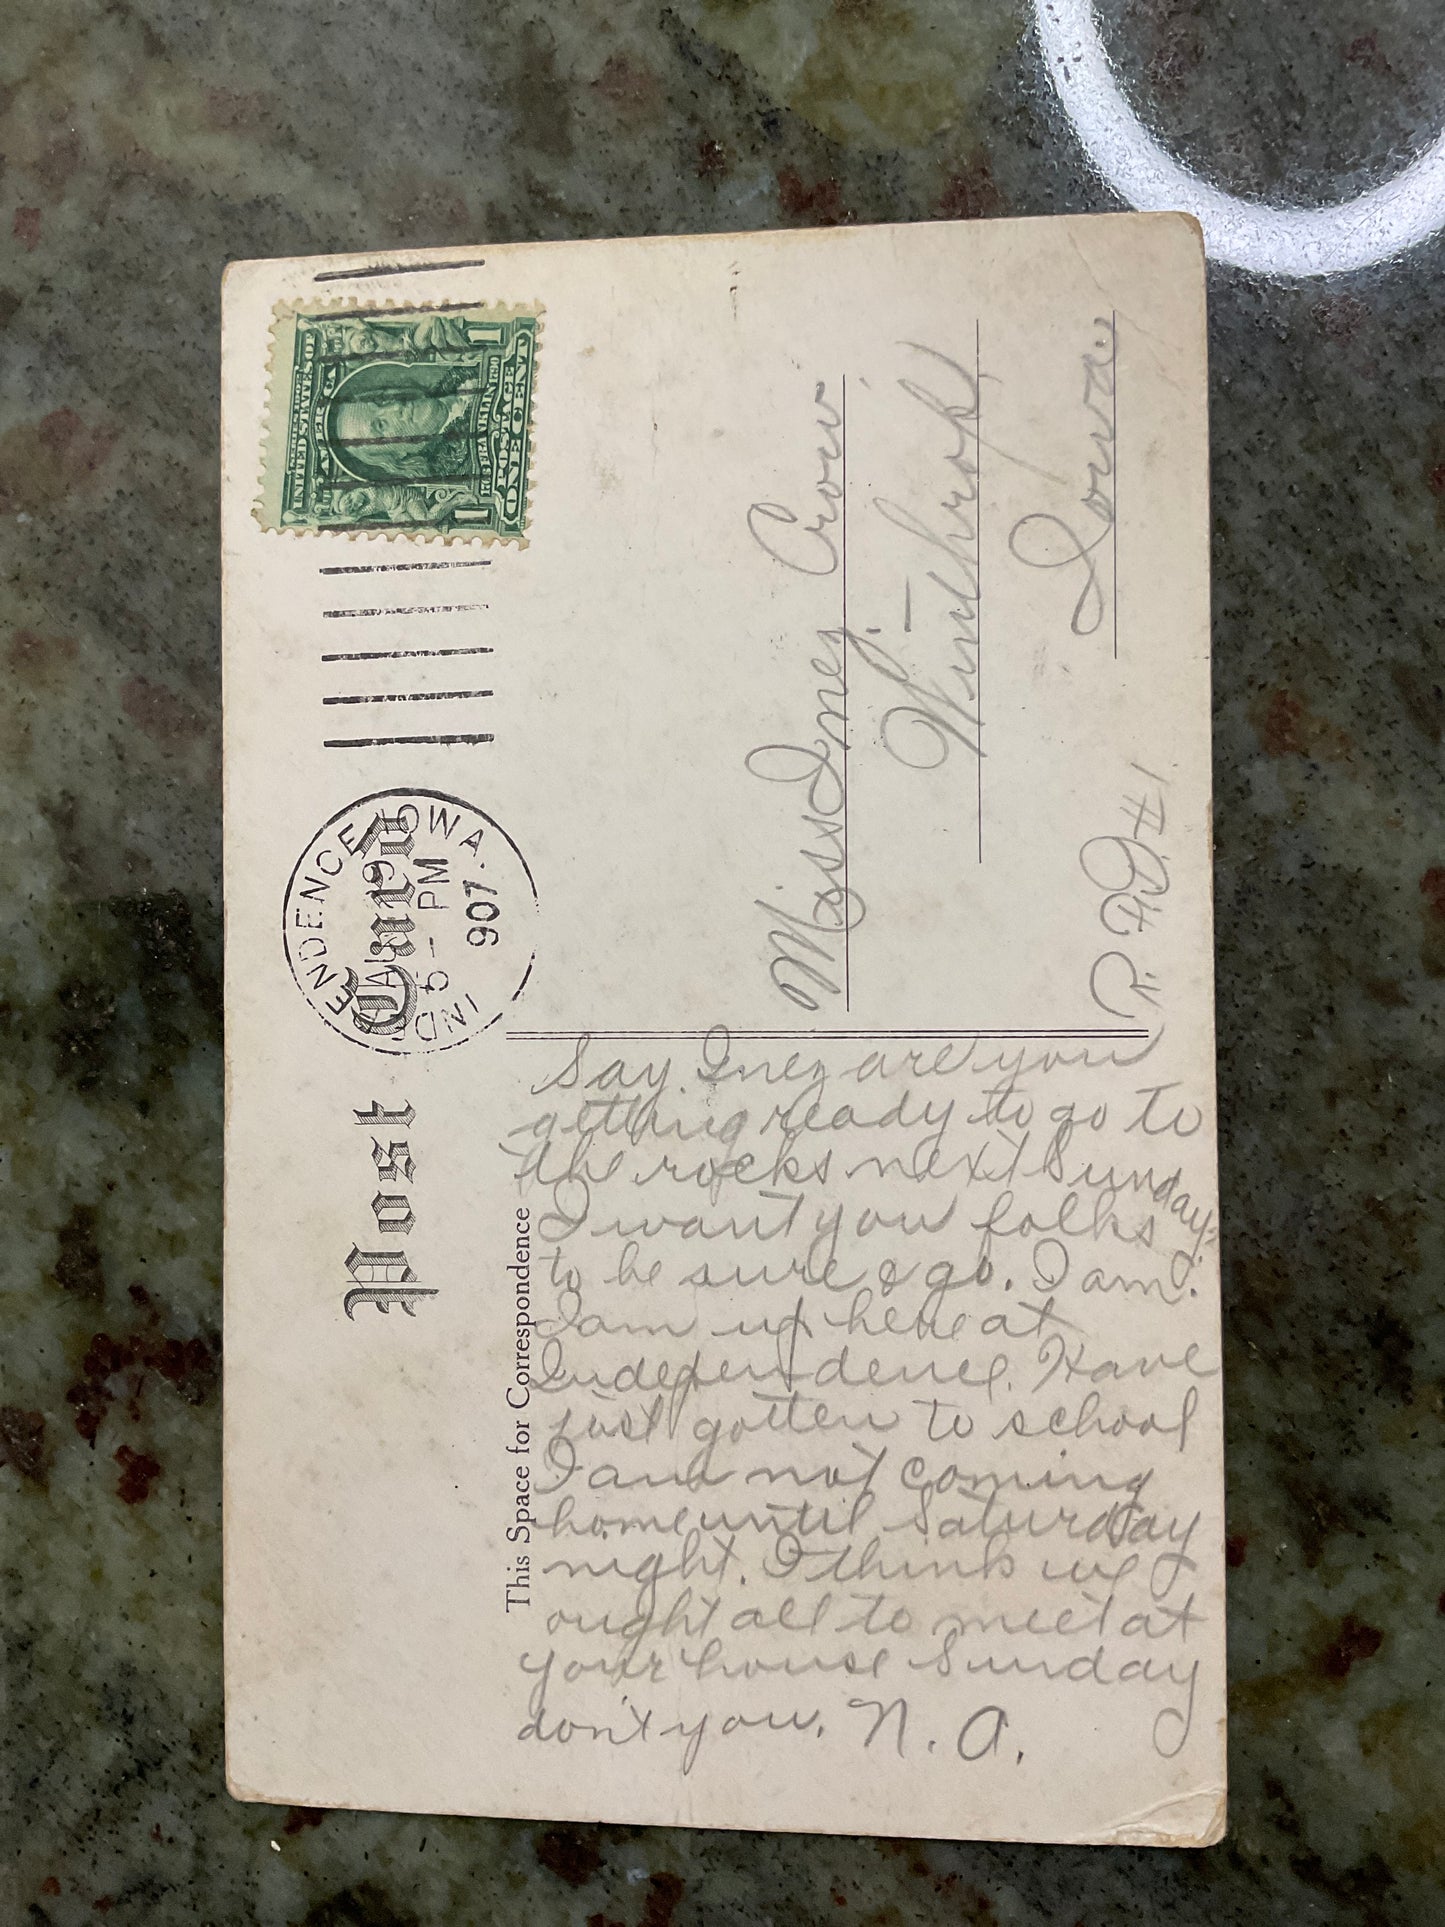 Post Card
INDEPENDENCE, IOWA.
5 - PM
1907
SERIES 1902
UNITED STATES OF
AMERICA
1706 FRANKLIN 1790
POSTAGE
1 ONE CENT 1
This Space for Correspondence
Say Inez are you
getting ready to go to
the rocks next Sunday.
I want you folks
to be sure & go. I am.
I am up here at
Independence. Have
just gotten to school
I am not coming
home until Saturday
night. I think we
ought all to meet at
your house Sunday
don't you. N. A.
Miss Inez Crow.
Winthrop,
Iowa.
R.F.D. #1.